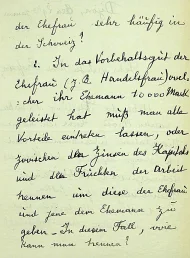 der Ehefrau sehr häufig in
der Schweiz?
2. In das Vorbehaltsgut der
Ehefrau (z.B. Handelsfrau) wel-
cher ihr Ehemann 10000 Mark
geleistet hat muß man alle
Vorteile eintreten lassen, oder
zwischen den Zinsen des Kapitals
und den Früchten der Arbeit
trennen um diese der Ehefrau
und jene dem Ehemann zu
geben - In diesem Fall, wie
kann man trennen?